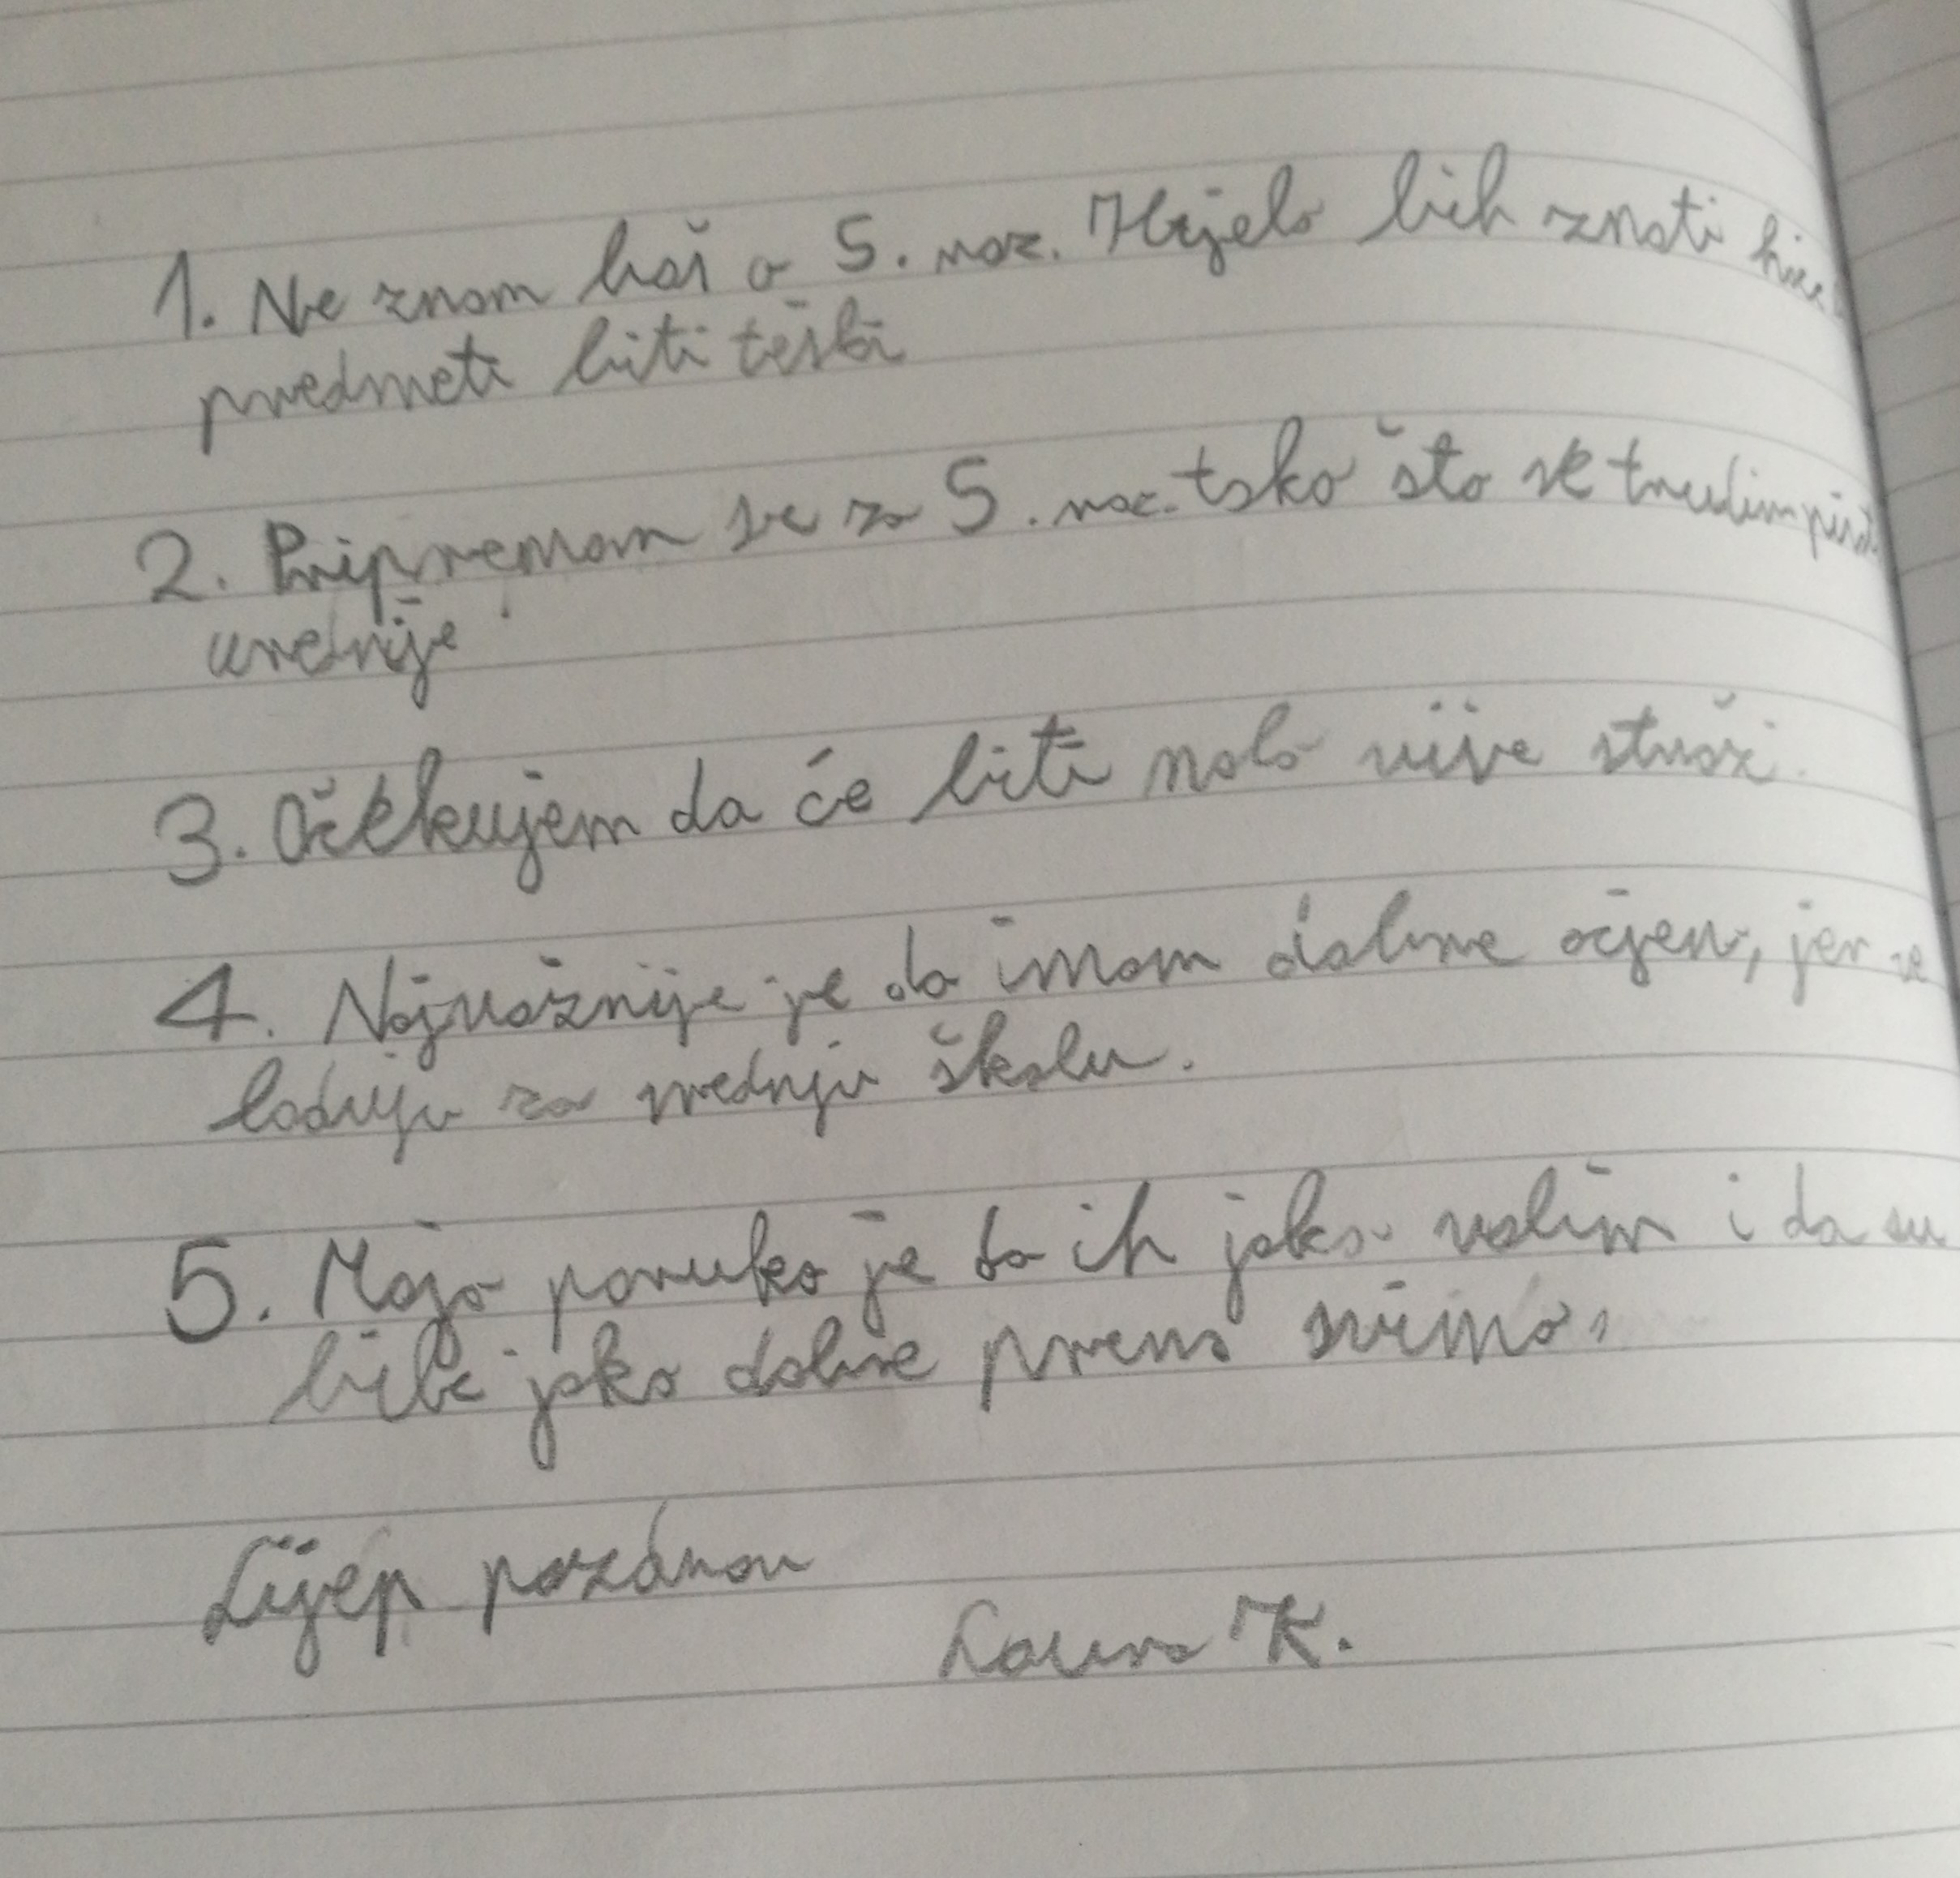 1. Ne znam baš o 5. raz. Htjela bih znati
predmeti biti teški
2. Pripremam se za 5. raz. tako što se trudim
urednije
3. Očekujem da će biti malo više stvari.
4. Najvažnije je da imam dobre ocjene, jer se
boduju za srednju školu.
5. Moja poruka je da ih jako volim i da su
bili jako dobre prema svima.
Lijep pozdrav
Laura K.